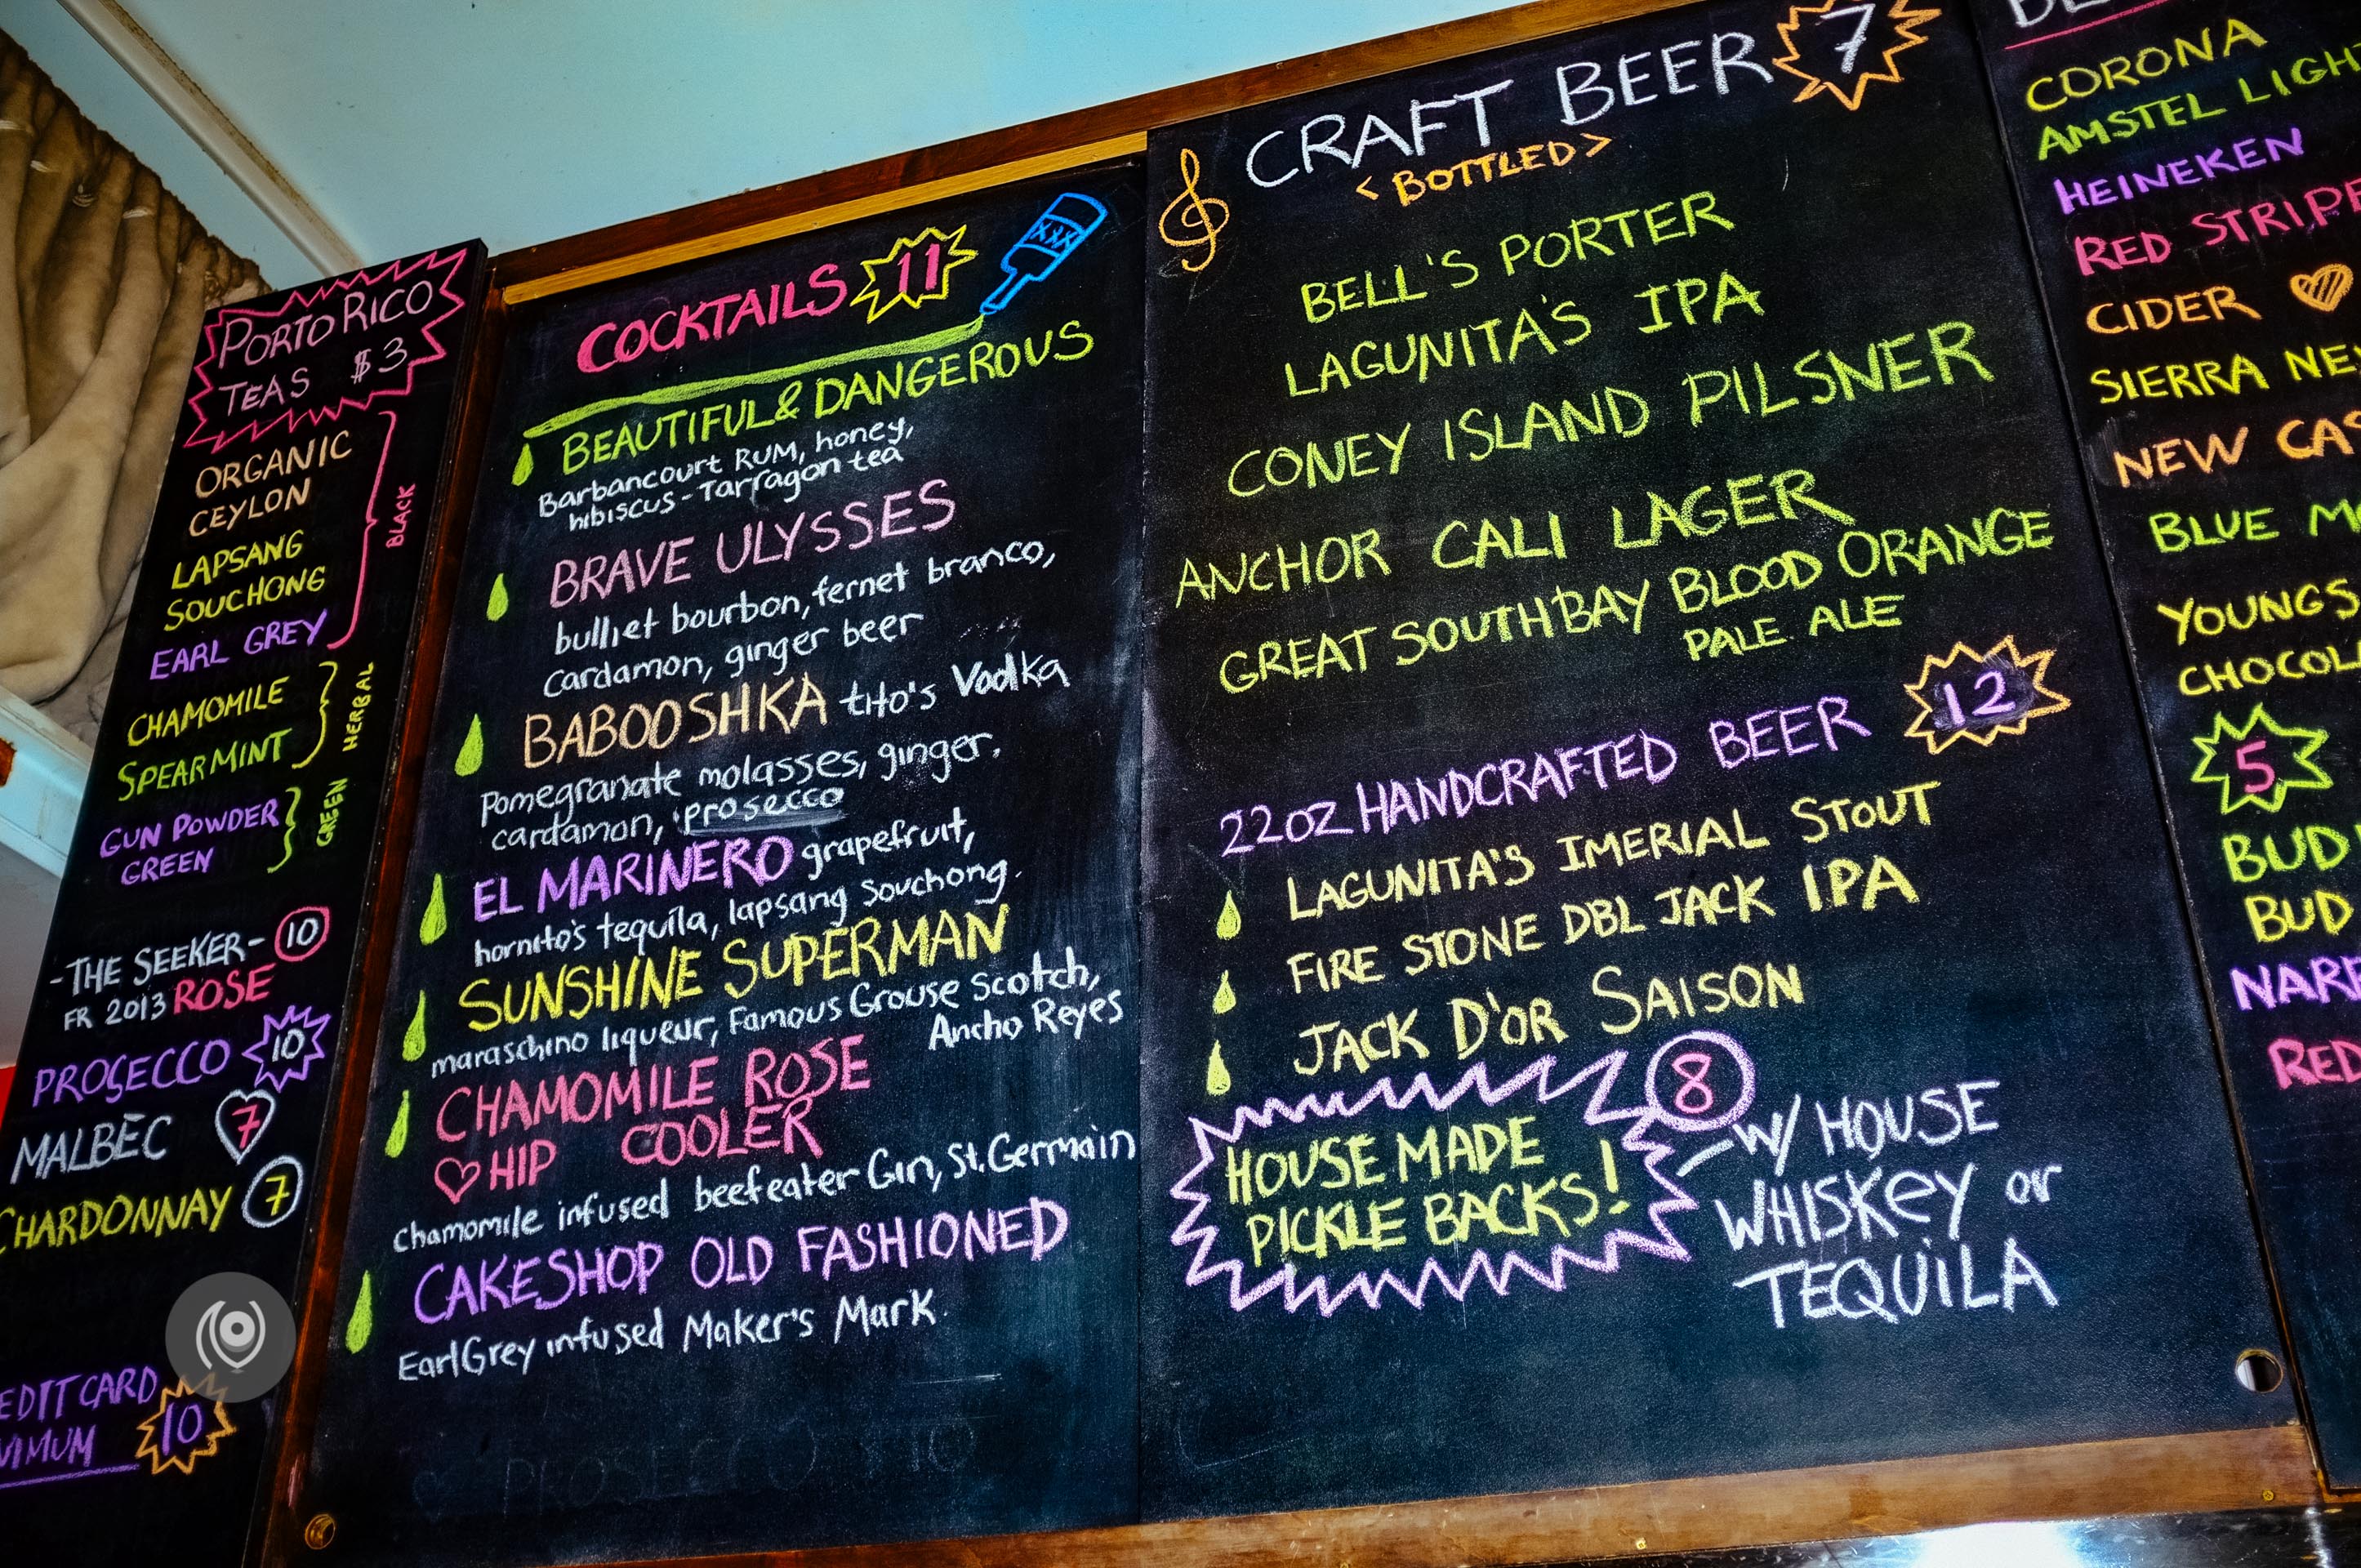 PORTO RICO
TEAS $3
ORGANIC
CEYLON
LAPSANG
SOUCHONG
EARL GREY
BLACK
CHAMOMILE
SPEARMINT
HERBAL
GUN POWDER
GREEN
GREEN
-THE SEEKER- 10
FR 2013 ROSE
PROSECCO 10
MALBEC 7
CHARDONNAY 7
CARD
10
COCKTAILS 11
XXX
BEAUTIFUL & DANGEROUS
Barbancourt RUM, honey,
hibiscus-Tarragon tea
BRAVE ULYSSES
bulliet bourbon, fernet branco,
cardamon, ginger beer
BABOOSHKA tito's Vodka
Pomegranate molasses, ginger,
cardamon, prosecco
EL MARINERO grapefruit,
hornito's tequila, lapsang Souchong.
SUNSHINE SUPERMAN
maraschino liqueur, Famous Grouse scotch,
Ancho Reyes
CHAMOMILE ROSE
HIP COOLER
chamomile infused beefeater Gin, St. Germain
CAKESHOP OLD FASHIONED
Earl Grey infused Maker's Mark.
PROSECCO
CRAFT BEER 7
<BOTTLED>
BELL'S PORTER
LAGUNITA'S IPA
CONEY ISLAND PILSNER
ANCHOR CALI LAGER
GREAT SOUTH BAY BLOOD ORANGE
PALE ALE
22OZ HANDCRAFTED BEER 12
LAGUNITA'S IMERIAL STOUT
FIRE STONE DBL JACK IPA
JACK D'OR SAISON
HOUSE MADE
PICKLE BACKS!
8
W/ HOUSE
WHISKEY or
TEQUILA
CORONA
AMSTEL LIGH
HEINEKEN
RED STRIPE
CIDER
SIERRA NE
NEW CAS
BLUE M
YOUNGS
CHOCOL
5
BUD
BUD
NAR
RED